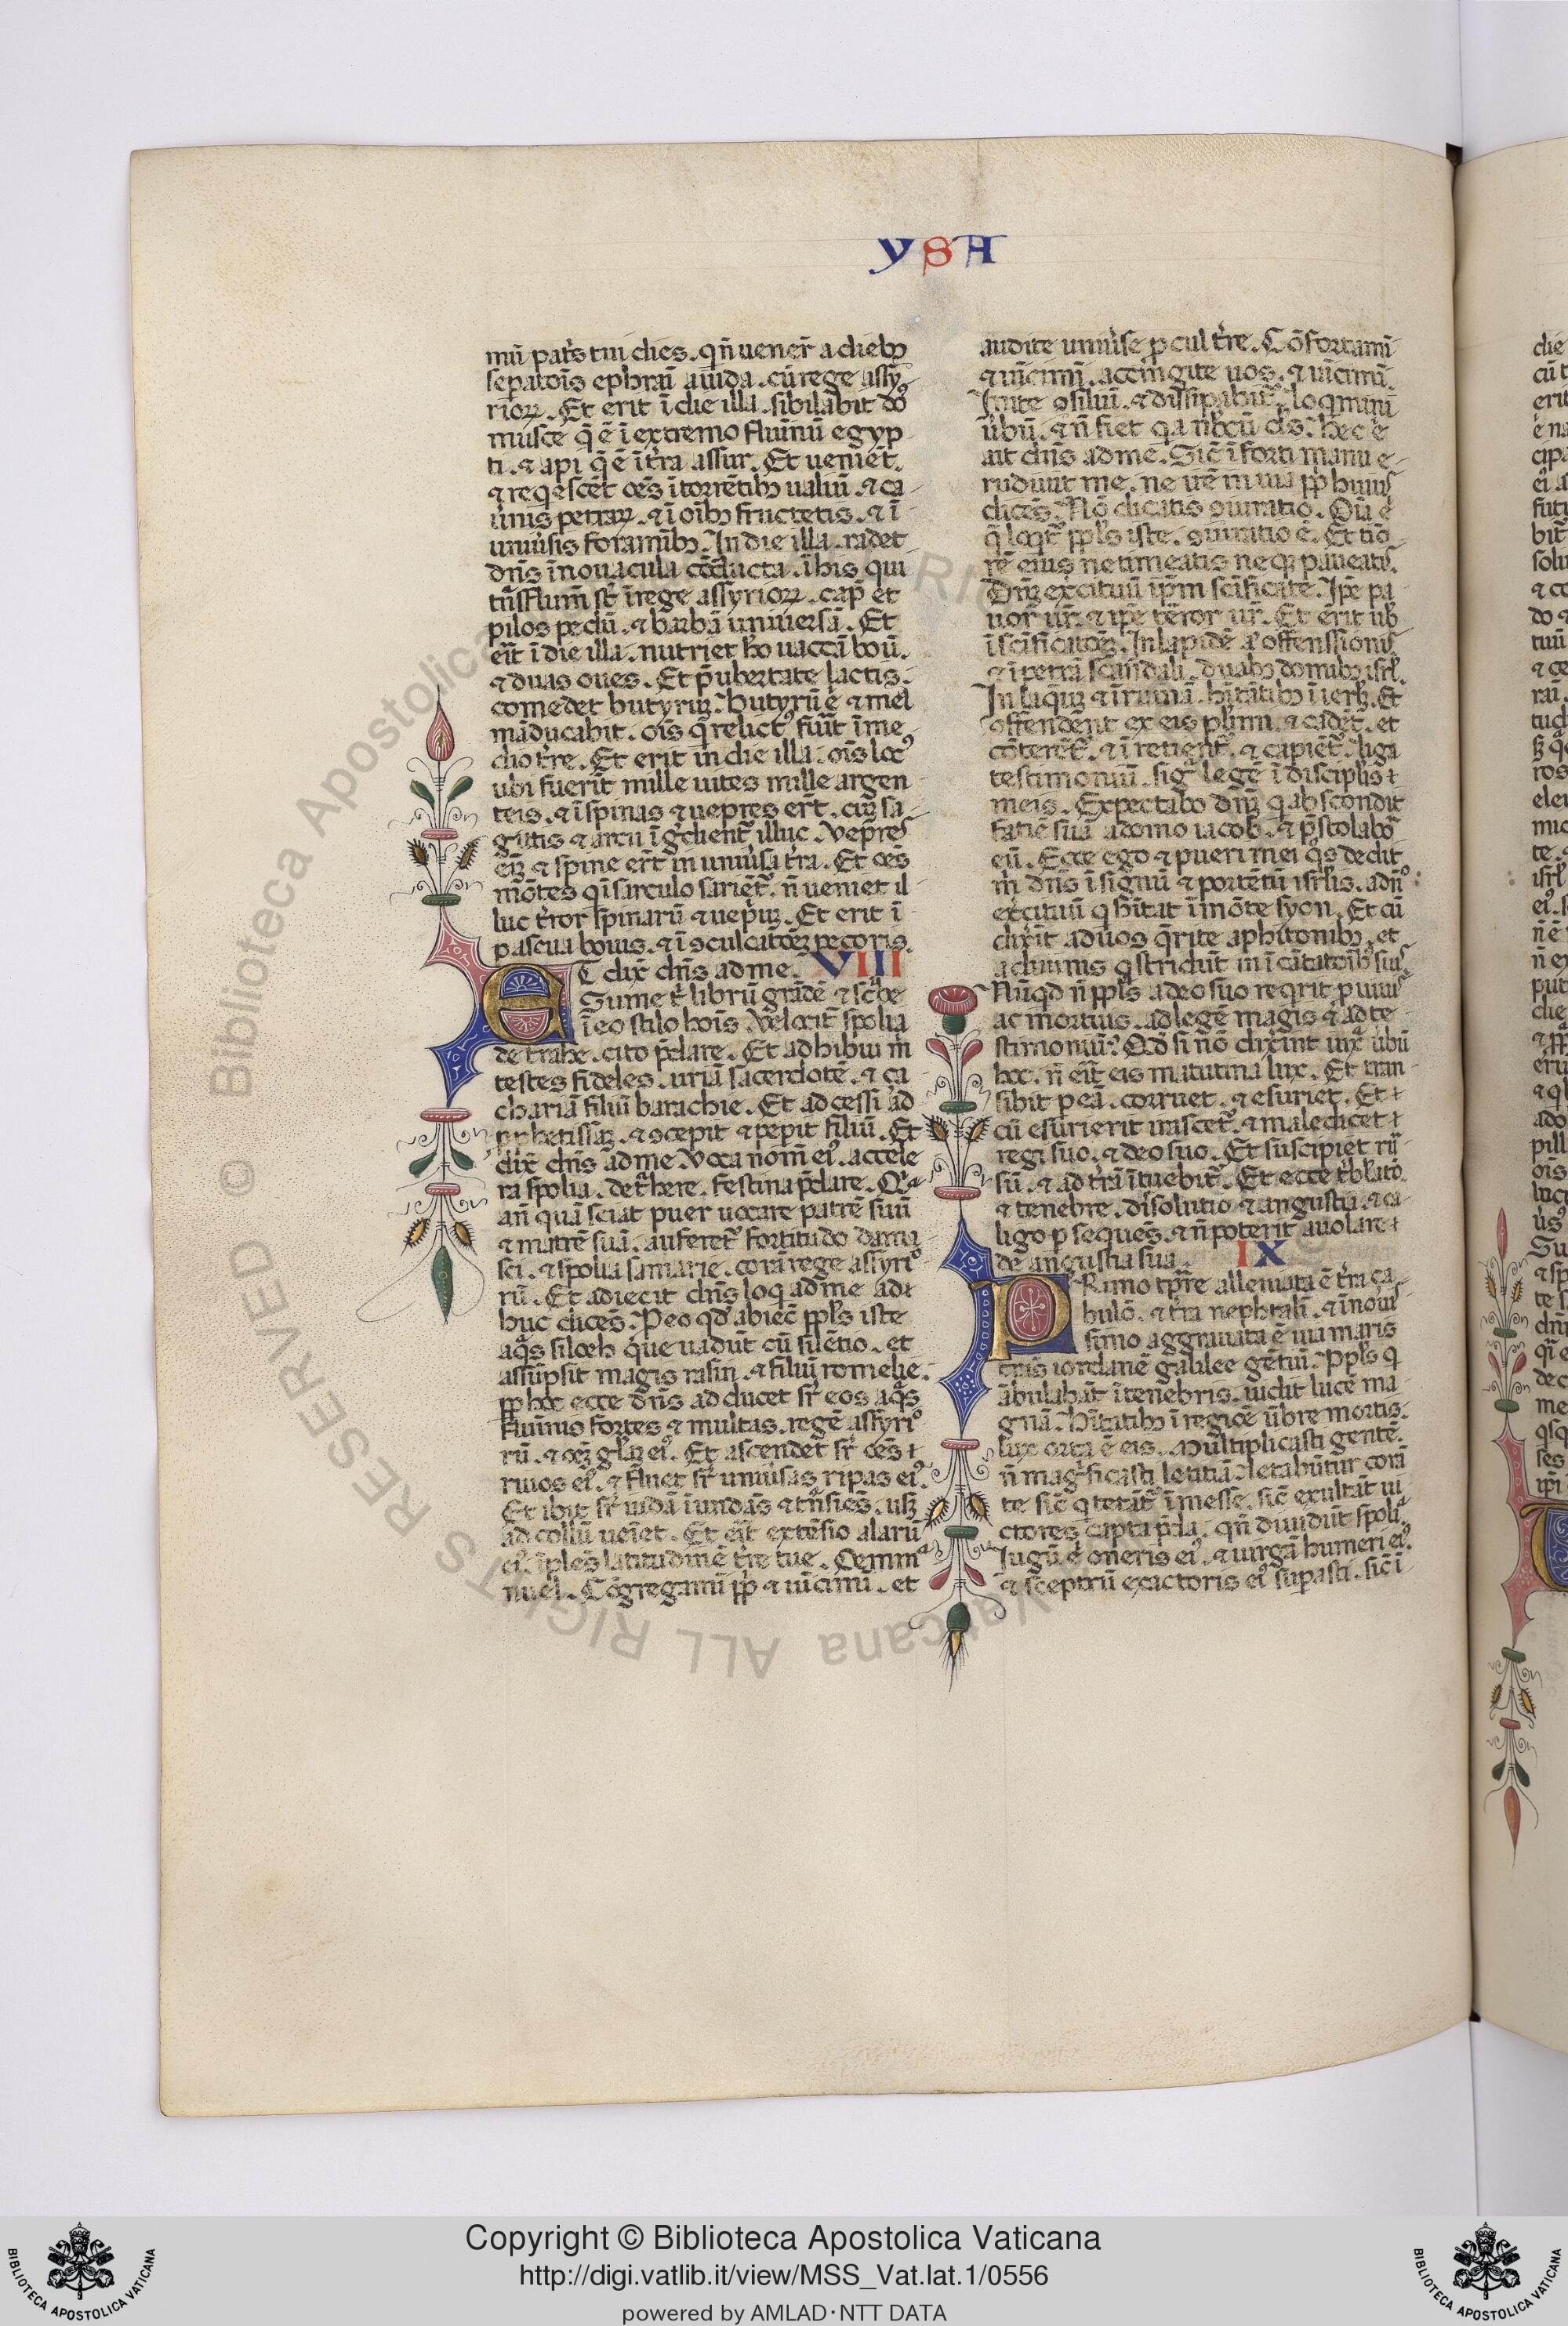 YSA
mū pat͛s tui dies. qn̄ uener̄ a dieb₉
sep̱atōis ephraī a iuda. cū rege assy
rioꝝ. Et erit ī die illa. sibilabit dō᷒
musce q̄ ē ī extremo fluīnū egyp
ti. ⁊ api q̄ ē ī t͛ra assur. Et ueniēt.
⁊ reqͥescēt oēs ī torrētib₉ ualiū. ⁊ ca
u͛nis petraꝝ. ⁊ ī oīb₉ fructetis. ⁊ ī
uniu͛sis foramīb₉. In die illa. radet
dn̄s ī nouacula cōducta. ī his qui
tn̄s flum̄ st̄ ī rege assyrioꝝ. cap̄ et
pilos pedū. ⁊ barbā uniuersā. Et
erīt ī die illa. nutriet ho uaccā boū.
⁊ duas oues. Et p̄ ubertate lactis.
comedet butyrūz. butyrū ē ⁊ mel
māducabit. oīs q̄ relict᷒ fūit ī me
dio t͛re. Et erit in die illa. oīs loc᷒
ubi fuerīt mille uites mille argen
teis. ⁊ ī spinas ⁊ uepres er̄t. cūz sa
gittis ⁊ arcu īg̊dient᷑ illuc. Vepres
eīz ⁊ spine er̄t in uniu͛sa t͛ra. Et oēs
mōtes qͥ ī sarculo sariēt᷑. n̄ ueniet il
luc t͛ror spinarū ⁊ uep̱ūz. Et erit ī
pascua bouis. ⁊ ī ↄculcatōēz pecoris.
ET dix̄ dn̄s ad me. VIII
Sume t̄ librū grādē ⁊ sc͛be
ī eo stilo hōis. Velocit᷑ spolia
detrahe. cito p̄dare. Et adhibui m̄
testes fideles. uriā sacerdotē. ⁊ ça
chariā filiū barachie. Et adcessi ad
pphetissaz. ⁊ ↄcepit ⁊ pepit filiū. Et
dix̄ dn̄s ad me Voca nom̄ ei᷒. accele
ra spolia. det͛here. festina p̄dare. Qᵃ
an̄ quā sciat puer uocare patrē suū
⁊ matrē suā. auferet᷑ fortitudo dama
sci. ⁊ spolia samarie. corā rege assyrio
rū. Et adiecit dn̄s loqͥ ad me ad
huc dices̄. Peo qd̄ abiec̄ ppl̄s iste
aqͣs siloeh que uadūt cū silētio. et
assūpsit magis rasin. ⁊ filiū romelie.
pp̱ hoc ecce dn̄s adducet sr̄ eos aqͣs
fluīnis fortes ⁊ multas. regē assyrio
rū. ⁊ oēz gl̄iaz ei᷒. Et ascendet sr̄ oēs
riuos ei᷒. ⁊ fluet sr̄ uniu͛sas ripas ei᷒.
Et ibit sr̄ iudā īundās ⁊ tn̄siēs. usqꝫ
ad collū ueīet. Et erīt extēsio alarū
ei᷒. īplēs latitudinē t͛re tue. O emmᵃ
nuel. Cōgregamī ppl̄i ⁊ uīcimī. et
audite uniu͛se ꝓcul t͛re. Cōfortamī
⁊ uīcimī. accīngite uos. ⁊ uicimī.
Inite ↄsiliū. ⁊ dissipabit᷑. loqͥmini
u͛bū. ⁊ n̄ fiet. qa nb̄cū ds̄. Hec ē
ait dn̄s ad me. Sic̄ ī forti manu e
rudiuit me. ne irē in uia ppl̄i huius
dicēs. Nō dicatis ↄiuratio. Oīa ē
q̄ loqͥt᷑ ppl̄s iste. ↄiuratio ē. Et tīo
rē eius ne timeatis neqꝫ paueatis.
Dn̄ūz ex͛cituū ip̄m scīficate. Ip̄e pa
uor ur̄. ⁊ ip̄e terror ur̄. Et erit uob̄
ī scīficatōēz. In lapidē aͧ offenssionis
⁊ ī petrā scandali. duab₉ domib₉ isrl̄.
In laqūz ⁊ ī ruinā. hītātib₉ ierl̄z. Et
offendent ex eis pl̄imi. ⁊ cadēt. et
cōterēt᷑. ⁊ īretient᷑. ⁊ capiēt᷑. liga
testimoniū. sigͣ legē ī discipl̄is
meis. Expectabo dn̄ūz qͥ abscondit
faciē suā a domo iacob. ⁊ p̄stolabor
eū. Ecce ego ⁊ pueri mei qͦs dedit
m̄ dn̄s ī signū ⁊ portētū isrl̄is. a dn̄o
ex͛cituū qͥ hītat ī mōte syon. Et cū
dix͛īt ad uos q̄rite a phitonib₉. et
a diuinis qͥ stridūt in īcātatōīb₉ suis
Nūqd̄ n̄ ppl̄s a deo suo reqͥrit ꝓ uiuis
ac mortuis. ad legē magis ⁊ ad te
stimoniū? Qd̄ si nō dix͛int iux̄ u͛bū
hoc. n̄ erīt eis matutina lux. Et tran
sibit p eā. corruet. ⁊ esuriet. Et
cū esurierit irascet᷑. ⁊ maledicet
regi suo. ⁊ deo suo. Et suscipiet rur̄
sū. ⁊ ad t͛rā ītuebit᷑. Et ecce t͛blatō.
⁊ tenebre. dissolutio ⁊ angustia. ⁊ ca
ligo p sequēs. ⁊ n̄ poterit auolare
de angustia sua. IX
PRimo tp̄re alleuiata ē t͛ra ça
bulō. ⁊ t͛ra nephtalī. ⁊ ī nouis
simo aggrauata ē uia maris
trās iordanē galilee gētiū. Ppl̄s qͥ
ābulabāt ī tenebris. uidit lucē ma
gnā. Hītātib₉ ī regiōē ūbre mortis.
lux orta ē eis. Multiplicasti gentē.
n̄ mag͛ficasti letitiā. letabūtur corā
te sic̄ qͥ letāt᷑ ī messe. sic̄ exultāt ui
ctores capta p̄da. qn̄ diuidūt spoliᵃ.
Iugū ē oneris ei᷒. ⁊ uirgā humeri ei᷒.
⁊ sceptrū exactoris ei᷒ supasti. sic̄ ī
Copyright © Biblioteca Apostolica Vaticana
http://digi.vatlib.it/view/MSS_Vat.lat.1/0556
powered by AMLAD·NTT DATA
BIBLIOTECA APOSTOLICA VATICANA
BIBLIOTECA APOSTOLICA VATICANA
© Biblioteca Apostolica Vaticana ALL RIGHTS RESERVED